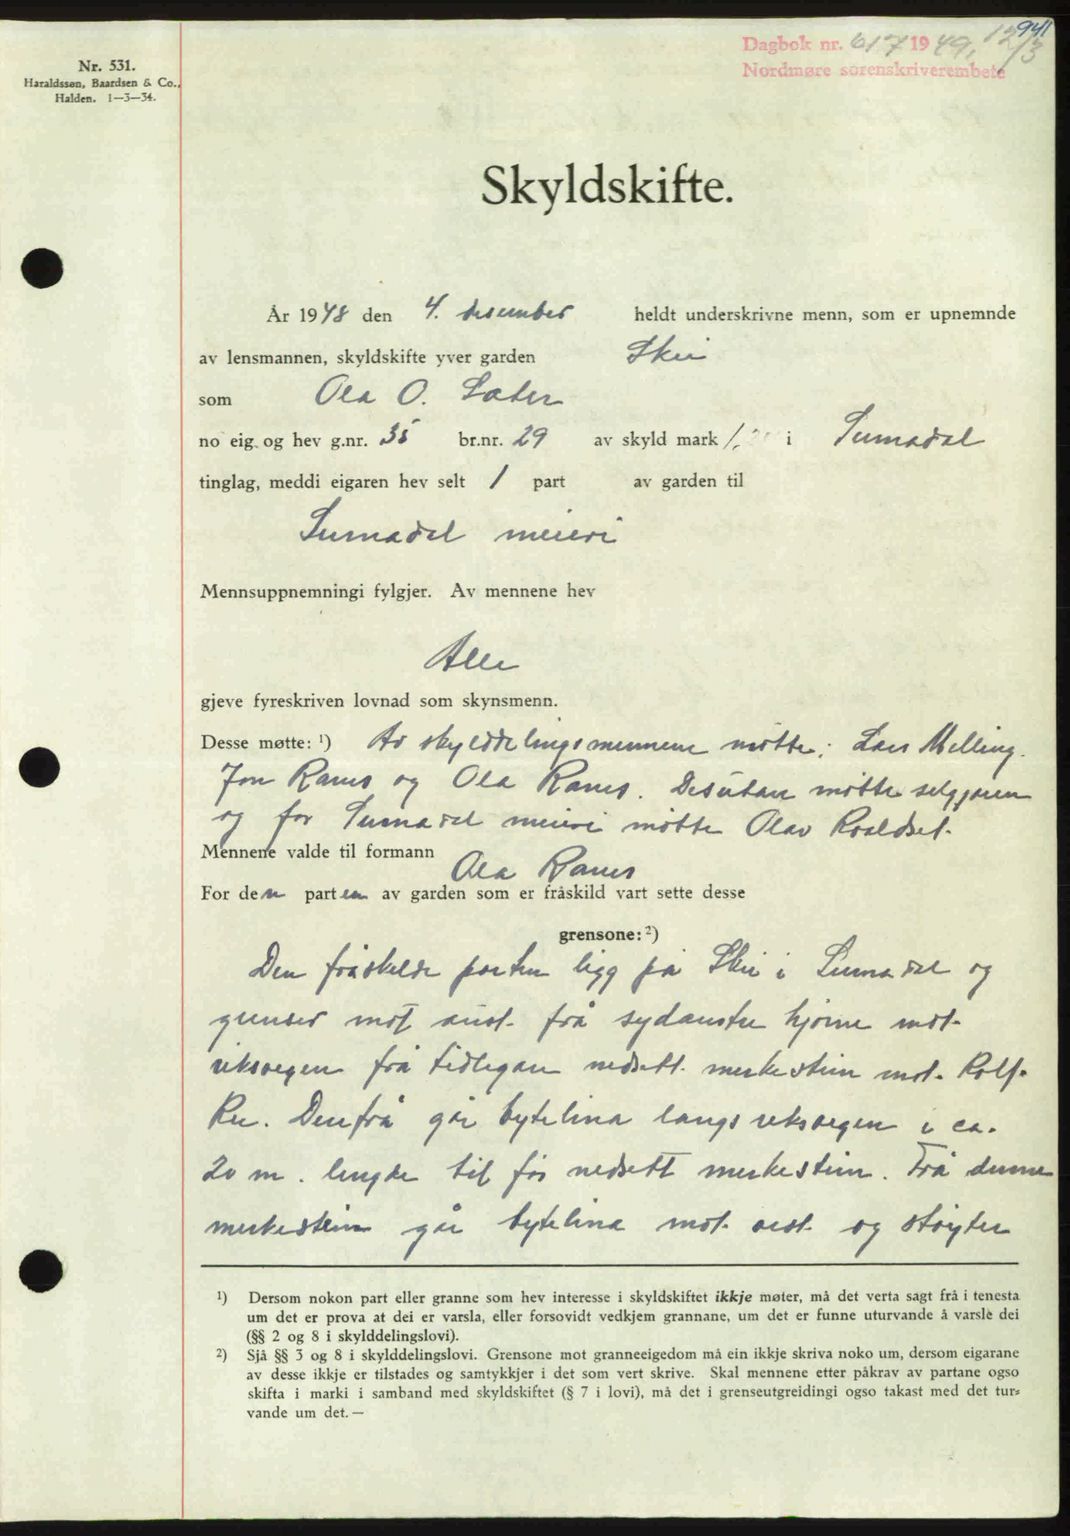 941
Dagbok nr. 617 1949, 12/3
Nordmøre sorenskriverembete
Nr. 531.
Haraldssøn, Baardsen & Co.,
Halden. 1—3—34.
Skyldskifte.
År 1948 den 4. desember heldt underskrivne menn, som er upnemnde
av lensmannen, skyldskifte yver garden Skei
som Ola O. Sæter
no eig og hev g.nr. 35 br.nr. 29 av skyld mark 1, i Surnadal
tinglag, meddi eigaren hev selt 1 part av garden til
Surnadal meieri
Mennsuppnemningi fylgjer. Av mennene hev
Alle
gjeve fyreskriven lovnad som skynsmenn.
Desse møtte: ¹) Av skylddelingsmennene møtte: Lars Melling.
Jon Ranes og Ola Ranes. Desutan møtte selgjaren
og for Surnadal meieri møtte Olav Roaldset.
Mennene valde til formann Ola Ranes
For den parten av garden som er fråskild vart sette desse
grensone: ²)
Den fråskilde parten ligg på Skei i Surnadal og
grenser mot aust. frå sydaustre hjørne mot
riksvegen frå tidlegare nedsett merkestein mot Rolf
Ree. Denfrå går bytelina langs riksvegen i ca.
20 m. lengde til før nedsett merkestein. Frå denne
merkestein går bytelina mot vest og støyter
¹) Dersom nokon part eller granne som hev interesse i skyldskiftet ikkje møter, må det verta sagt frå i tenesta
um det er prova at dei er varsla, eller forsovidt vedkjem grannane, um det er funne uturvande å varsle dei
(§§ 2 og 8 i skylddelingslovi).
²) Sjå §§ 3 og 8 i skylddelingslovi. Grensone mot granneeigedom må ein ikkje skriva noko um, dersom eigarane
av desse ikkje er tilstades og samtykkjer i det som vert skrive. Skal mennene etter påkrav av partane ogso
skifta i marki i samband med skyldskiftet (§ 7 i lovi), må det i grenseutgreidingi ogso takast med det tur-
vande um det.—